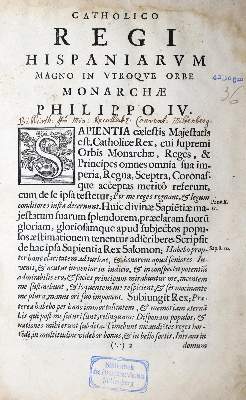 CATHOLICO
REGI
HISPANIARVM
MAGNO IN VTROQVE ORBE
MONARCHÆ
PHILIPPO IV.
SAPIENTIA cælestis Majestatis
est, Catholice Rex, cui supremi
Orbis Monarchæ, Reges, &
Principes omnes omnia sua im-
peria, Regna, Sceptra, Coronas-
que accepta meritò referunt,
cùm de se ipsa testetur; per me reges regnant, & legum
conditores justa decernunt. Hinc divinæ Sapientiæ ma-
jestatem suarum splendorem, præclaram suorū
gloriam, gloriosamque apud subjectos popu-
los æstimationem venerunt adscribere. Scripsit
de hac ipsa Sapientia Rex Salomon; Habebo propter
hanc claritatem ad turbas, & honorem apud seniores Ju-
venis, & acutus inveniar in judicio, & in conspectu potentiū
admirabilis ero, & facies principum mirabuntur me, tacentem
me sustinebunt, & loquentem me respicient, & sermocinante
me plura, manus ori suo imponent. Subjungit Rex, Præ-
terea habebo per hanc immortalitatem, & memoriam æterna
his qui post me futuri sunt relinquam: Disponam populos, &
nationes mihi erunt subditæ: Timebunt me audientes reges hor-
ridi, in multitudine videbor bonus, & in bello fortis. Intrans in
2
domum
Bibliothek